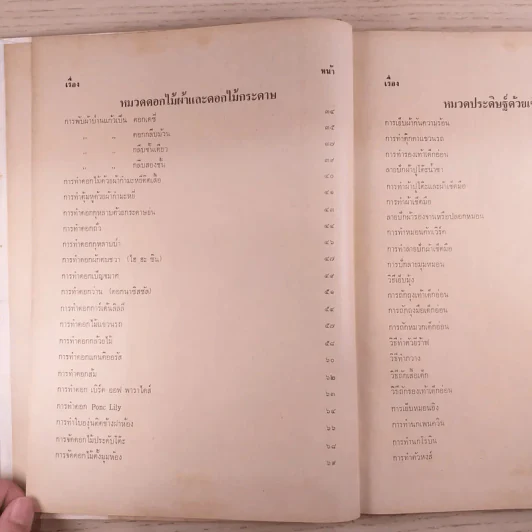 เรื่อง หน้า
หมวดดอกไม้ผ้าและดอกไม้กระดาษ
การพับผ้าป่านแก้วเป็น ดอกเดซี่ ๓๔
" " ดอกกลีบม้วน ๓๕
" " กลีบชั้นเดียว ๓๗
" " กลีบสองชั้น
การทำดอกไม้ด้วยผ้ากำมะหยี่
การทำตุ้มหูด้วยผ้ากำมะหยี่
การทำดอกกุหลาบด้วยกระดาษย่น
การทำดอกบัว
การทำดอกกุหลาบป่า ๔๖
การทำดอกผักตบชวา (ไฮ ยะ ซิน) ๔๗
การทำดอกเบ็ญจมาศ ๔๙
การทำดอกว่าน (ดอกนาซิสซัส) ๕๑
การทำดอกการ์เด้นลิลลี่ ๕๔
การทำดอกไม้แขวนรถ ๕๗
การทำดอกกล้วยไม้ ๕๘
การทำดอกแกนดิออรัส ๖๐
การทำดอกส้ม ๖๒
การทำดอก เบิร์ด ออฟ พาราไดส์ ๖๓
การทำดอก Punc Lily ๖๔
การทำใบองุ่นติดข้างฝาห้อง ๖๖
การจัดดอกไม้ประดับโต๊ะ ๖๘
การจัดดอกไม้ตั้งมุมห้อง ๖๙
เรื่อง
หมวดประดิษฐ์ด้วย
การเย็บผ้ากันความร้อน
การทำตุ๊กตาแขวนรถ
การทำรองเท้าเด็กอ่อน
ลายปักผ้าปูโต๊ะน้ำชา
การทำผ้าปูโต๊ะและผ้าเช็ดมือ
การทำผ้าเช็ดมือ
การทำหมอน
การทำลายปักผ้าเช็ดมือ
การปักลายมุมหมอน
วิธีเย็บมุ้ง
การถักถุงเท้าเด็กอ่อน
การถักถุงมือเด็กอ่อน
การถักหมวกเด็กอ่อน
วิธีทำตัวยีร้าฟ
วิธีทำกวาง
วิธีถักเสื้อเด็ก
วิธีถักรองเท้าเด็กอ่อน
การเย็บหมอนอิง
การทำนกเพนควิน
การทำนกโรบิน
การทำตัวหงส์